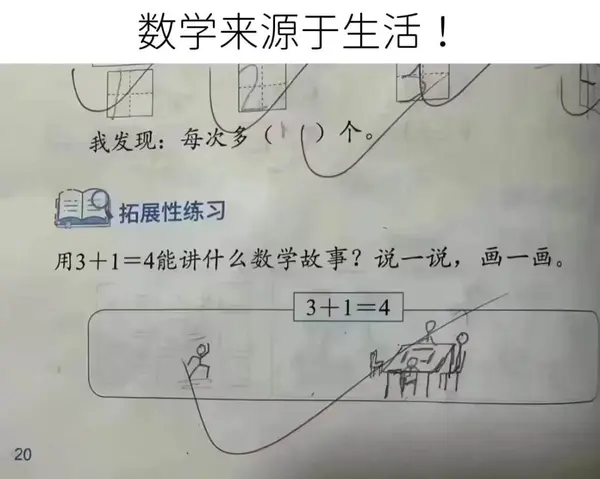 数学来源于生活！
1 2 3
我发现：每次多（1）个。
拓展性练习
用3＋1＝4能讲什么数学故事？说一说，画一画。
3＋1＝4
20